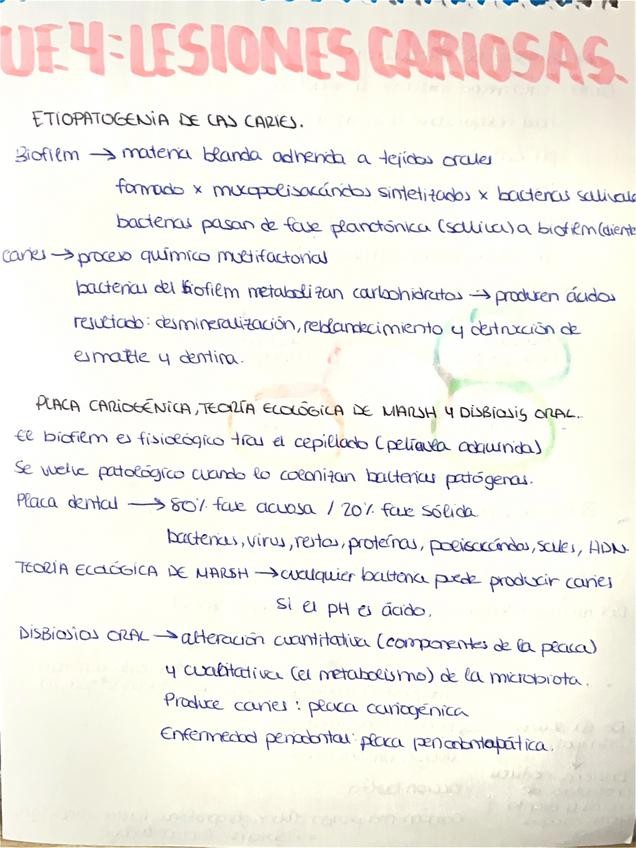 UE 4: LESIONES CARIOSAS.
ETIOPATOGENIA DE LAS CARIES.
Biofilm → materia blanda adherida a tejidos orales
formado x mucopolisacáridos sintetizados x bacterias salivale
bacterias pasan de fase planctónica (saliva) a biofilm (diente
caries → proceso químico multifactorial
bacterias del biofilm metabolizan carbohidratos → producen ácidos
resultado: desmineralización, reblandecimiento y destrucción de
esmalte y dentina.
PLACA CARIOGÉNICA, TEORÍA ECOLÓGICA DE MARSH Y DISBIOSIS ORAL.
El biofilm es fisiológico tras el cepillado (película adquirida)
Se vuelve patológico cuando lo colonizan bacterias patógenas.
Placa dental → 80% fase acuosa / 20% fase sólida
bacterias, virus, restos, proteínas, polisacáridos, sales, ADN.
TEORÍA ECOLÓGICA DE MARSH → cualquier bacteria puede producir caries
si el pH es ácido.
DISBIOSIOS ORAL → alteración cuantitativa (componentes de la placa)
y cualitativa (el metabolismo) de la microbiota.
Produce caries: placa cariogénica
Enfermedad periodontal: placa periodontopática.